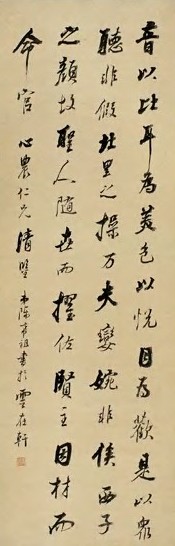 音以比耳為美色以悅目為歡是以眾
聽非假北里之操万夫孌婉非俟西子
之顏故聖人隨世而擢佐賢主因材而
命官 心農仁兄清鑒 陳祖書於雲在軒